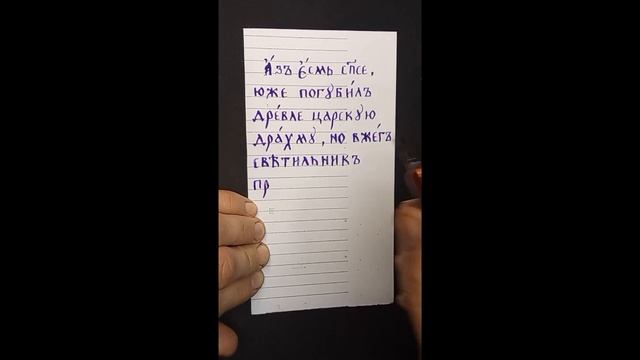 А҆́зъ є҆́смь сп҃се,
юже погꙋби́лъ
дре́вле ца́рскую
дра́хмꙋ, но вже́гъ
свѣти́льникъ
пр